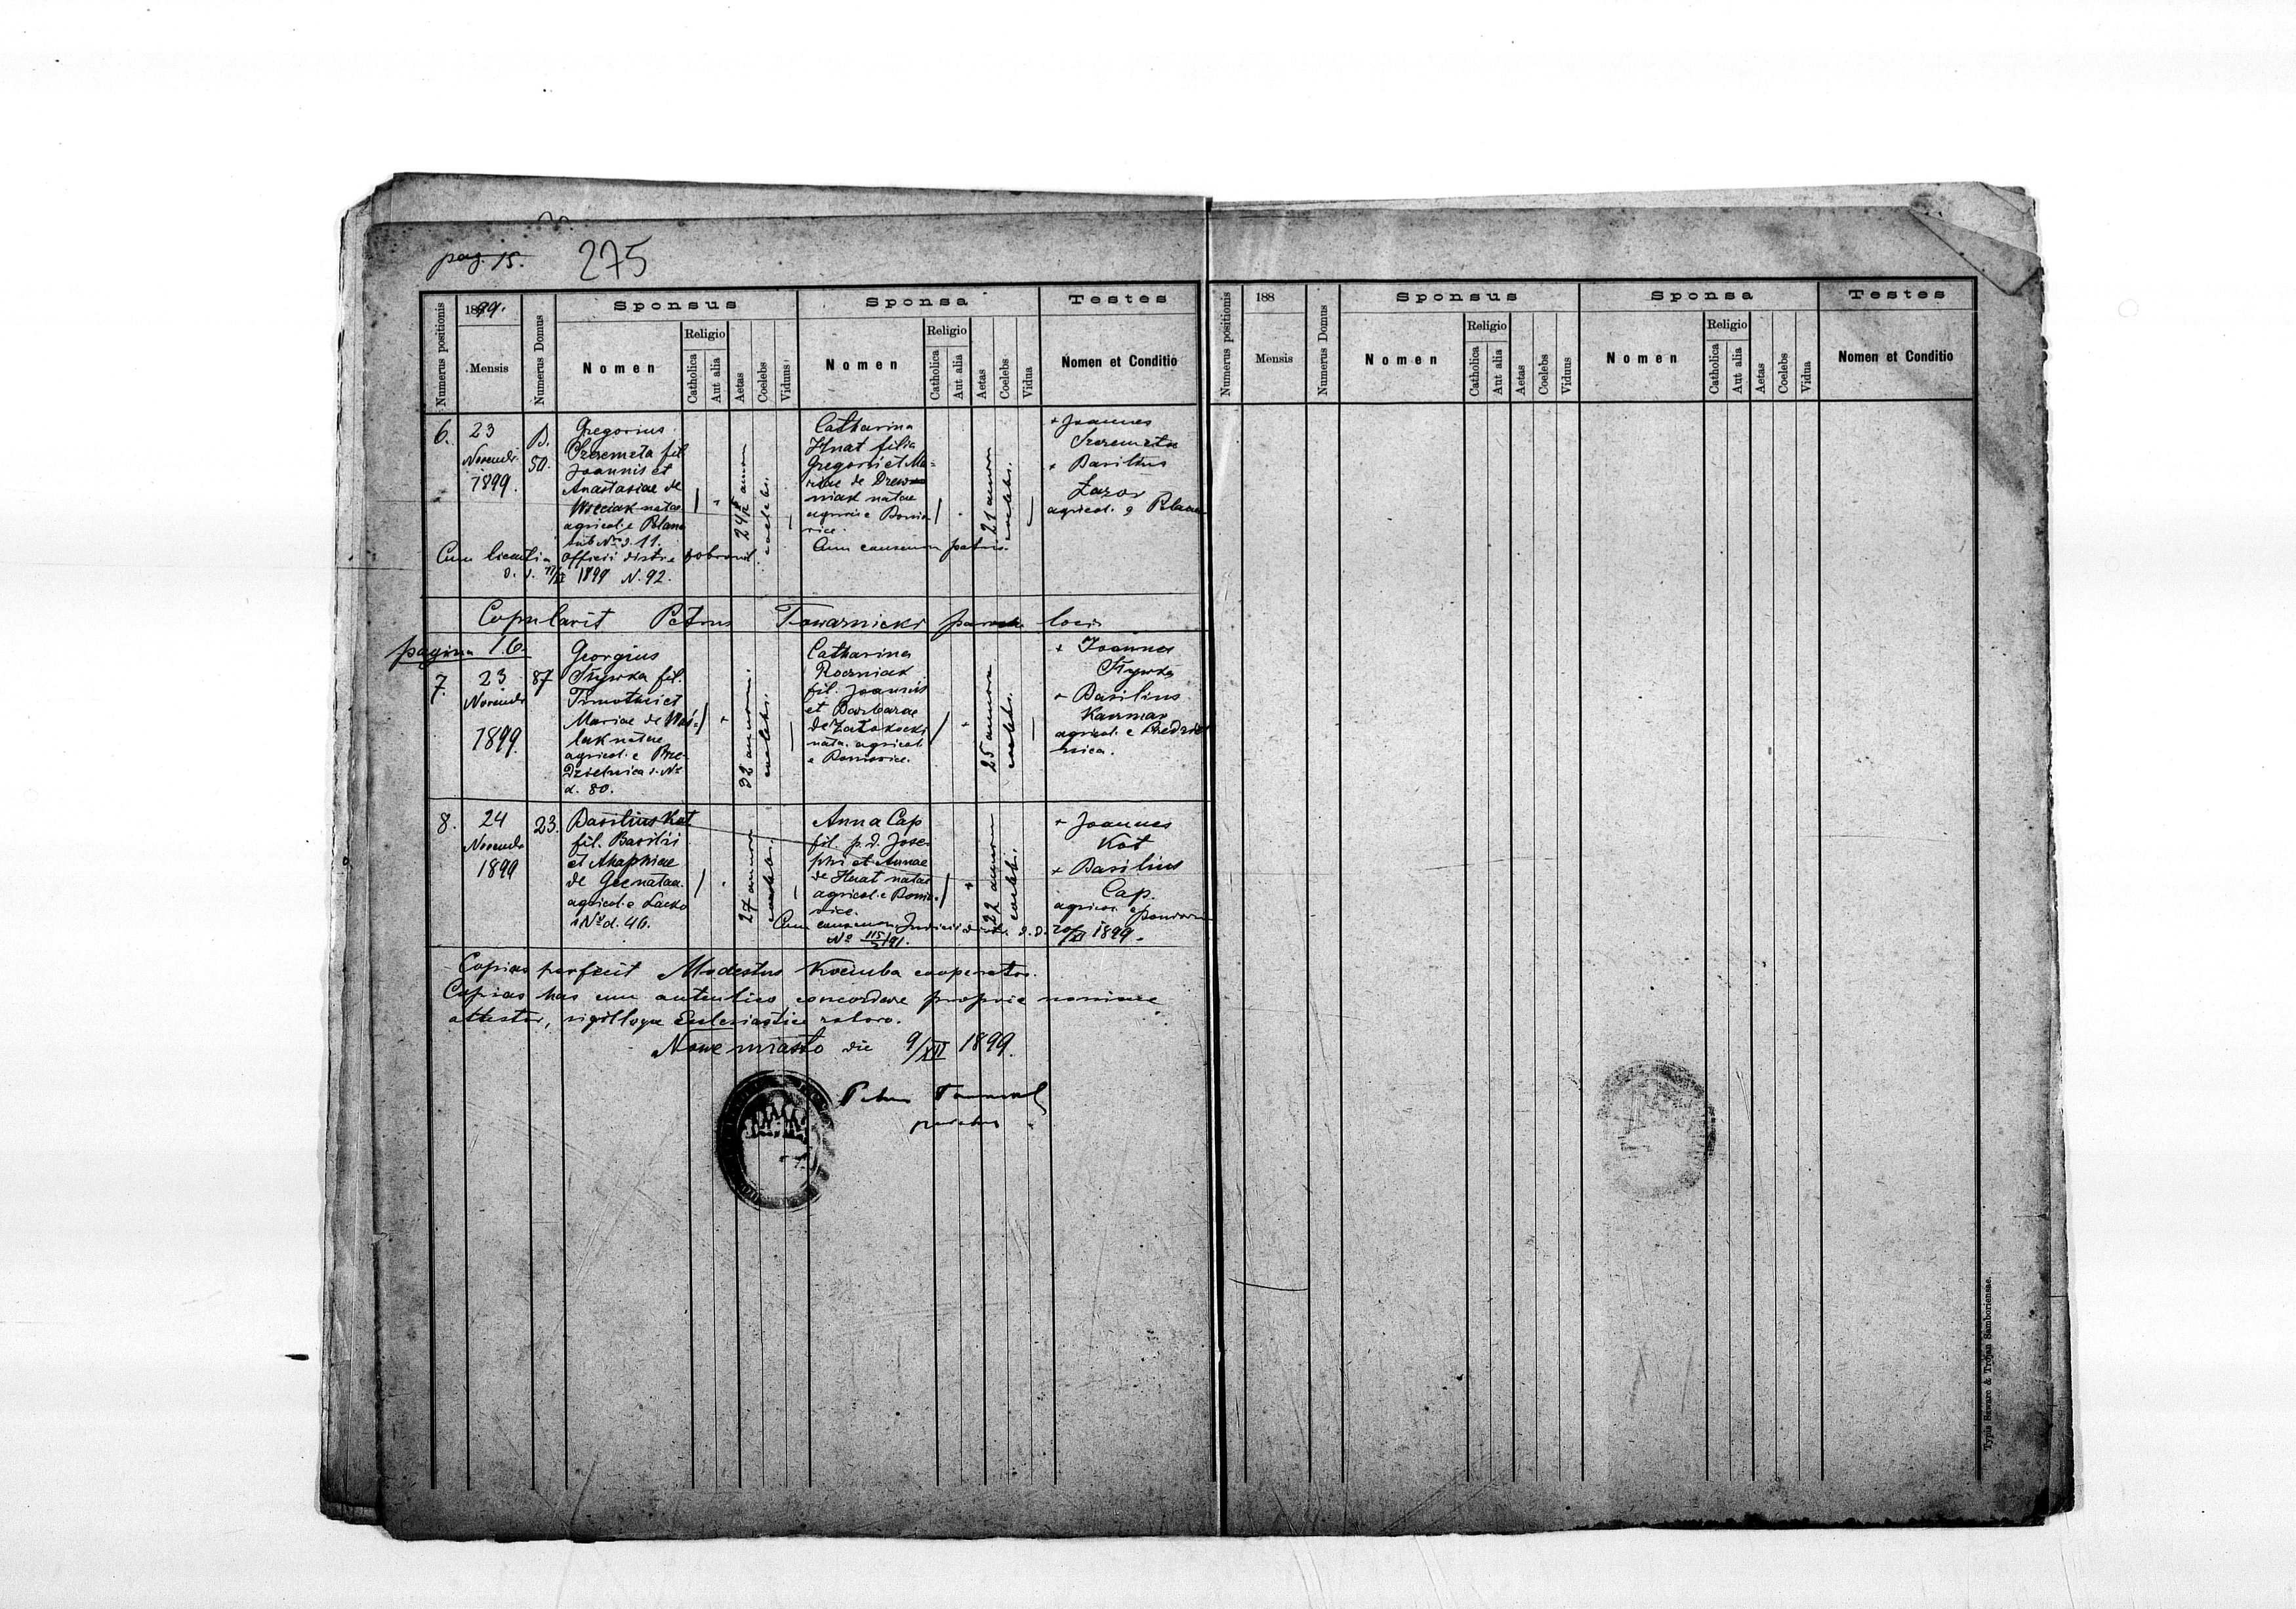 pag. 15.
275
Numerus positionis
1899.
Mensis
Numerus Domus
Sponsus
Nomen
Religio
Catholica
Aut alia
Aetas
Coelebs
Viduus
Sponsa
Nomen
Religio
Catholica
Aut alia
Aetas
Coelebs
Vidua
Testes
Nomen et Conditio
6.
23
Novembr
1899.
B.
50.
Gregorius
Szeremeta fil
Joannis et
Anastasiae de
natae
agricol. e
sub No d. 11.
24 annor
coelebs.
Catharina
Hnat filia
Gregorii et Ma=
riae de Drew
niak natae
agricol. e Bonio
vice.
21 annor
coelebs.
+ Joannes
Szeremeta
+ Basilius
Lazor
agricol. e
Cum licentia officii distr. e Dobromil
d. d. 17/XI 1899 N. 92.
Cum consensu patris.
Copulavit Petrus Towarnicki paroch loci
pagina 16.
7.
23
Novembr
1899.
87
Georgius
fil.
Timothei et
Mariae de Waś=
lak natae
agricol. e Prze-
dzielnica s. No
d. 80.
32 annor.
coelebs.
Catharina
Roczniak
fil. Joannis
et Barbarae
de
nata. agricol.
e Boniovice.
25 annor
coelebs.
+ Joannes
+ Basilius
Kaczmar
agricol. e Przedziel
nica.
8.
24
Novembr
1899
23.
Basilius Kot
fil. Basilii
et Ahaphiae
de Gec natae.
agricol. e Lacko
s No d. 46.
27 annor
coelebs.
Anna Cap
fil. p. d. Jose-
phi et Annae
de Hnat natae
agricol. e Bonio-
vice.
22 annor
coelebs.
+ Joannes
Kot
+ Basilius
Cap.
agricol. e Boniovice
Cum consensu Judicii distr. d. d. 20/XI 1899.
No
Copias perfecit Modestus Kociuba cooperator.
Copias has cum autentico concordare proprio nomine
attestor, sigilloque Eclesiastico roboro.
Nowemiasto die 9/XII 1899.
Petrus
parochus
Numerus positionis
188
Mensis
Numerus Domus
Sponsus
Nomen
Religio
Catholica
Aut alia
Aetas
Coelebs
Viduus
Sponsa
Nomen
Religio
Catholica
Aut alia
Aetas
Coelebs
Vidua
Testes
Nomen et Conditio
Typis Szwarc & Trojan Samboriensae.